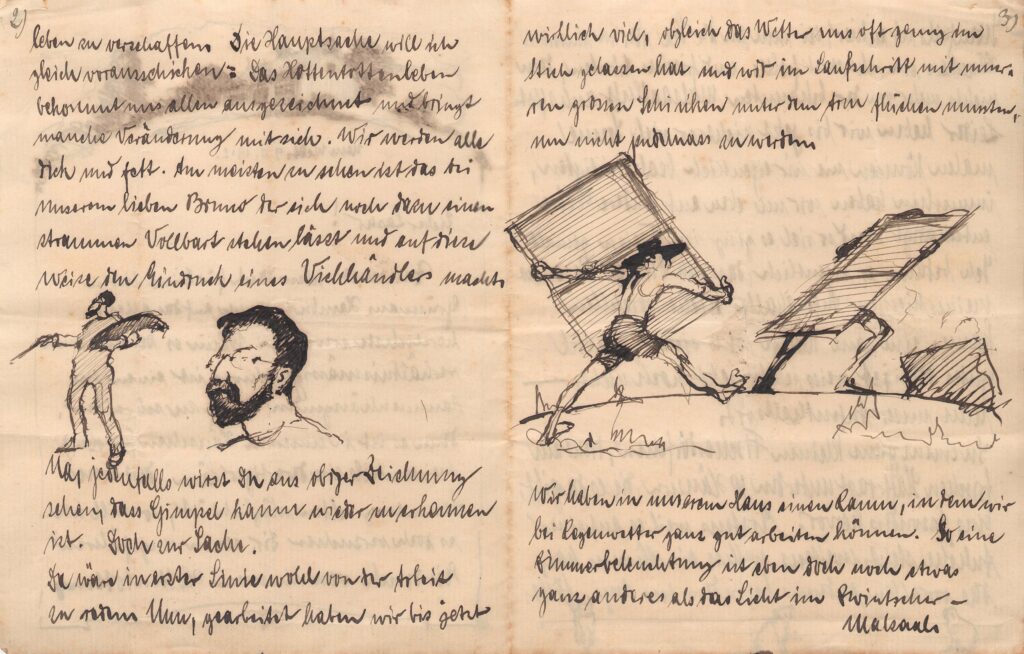 2)
leben zu verschaffen. Die Hauptsache will ich
gleich vorausschicken: Das Hottentottenleben
bekommt uns allen ausgezeichnet und bringt
manche Veränderung mit sich. Wir werden alle
dick und fett. Am meisten zu sehen ist das bei
unserem lieben Bruno der sich noch dazu einen
strammen Vollbart stehen lässt und auf diese
Weise den Eindruck eines Viehhändlers macht.
Na, jedenfalls wirst Du aus obiger Zeichnung
sehen, dass Gimpel kaum wieder zu erkennen
ist. Doch zur Sache.
Da wäre in erster Linie wohl von der Arbeit
zu reden. Nun, gearbeitet haben wir bis jetzt
3)
wirklich viel, obgleich das Wetter uns oft genug im
Stich gelassen hat und wir im Laufschritt mit unse-
ren grossen Schinken unter dem Arm flüchten mussten,
um nicht pudelnass zu werden
Wir haben in unserem Haus einen Raum, in dem wir
bei Regenwetter ganz gut arbeiten können. So eine
Zimmerbeleuchtung ist eben doch noch etwas
ganz anderes als das Licht im Zwintscher-
Malsaal.